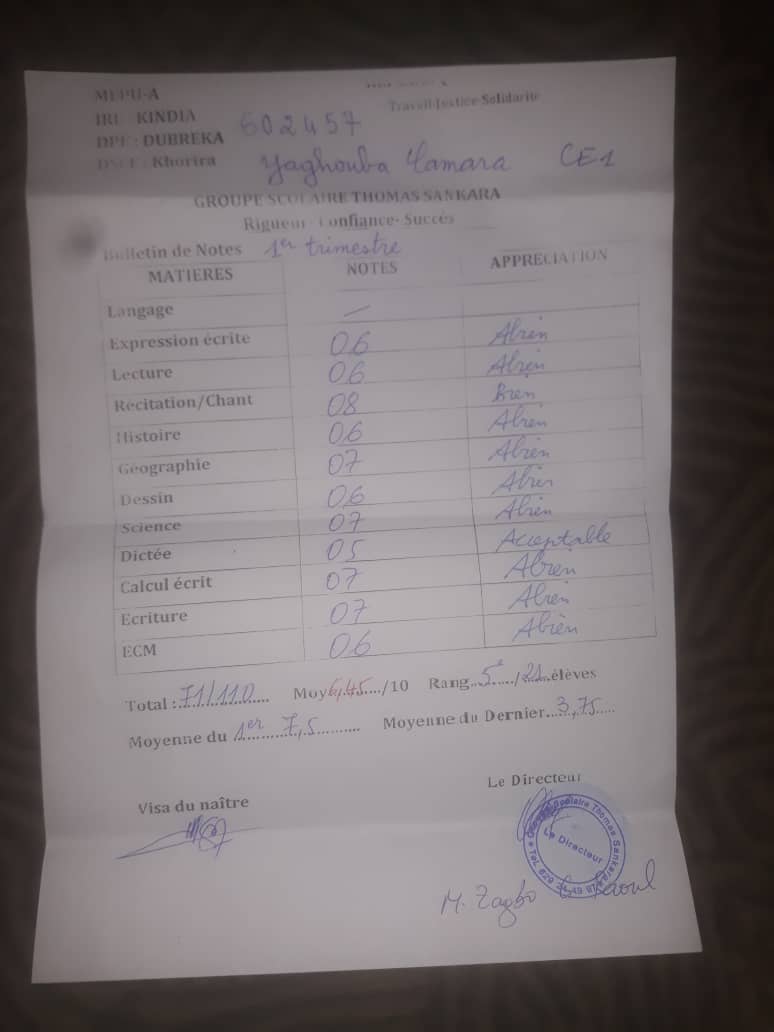 MEPU-A
Travail-Justice-Solidarité
IRE : KINDIA
602457
DPE : DUBREKA
DSEE : Khorira
Yaghouba Camara CE1
GROUPE SCOLAIRE THOMAS SANKARA
Rigueur-Confiance-Succès
Bulletin de Notes 1er trimestre
MATIERES NOTES APPRECIATION
Langage —
Expression écrite 06 Abien
Lecture 06 Abien
Récitation/Chant 08 Bien
Histoire 06 Abien
Géographie 07 Abien
Dessin 06 Abien
Science 07 Abien
Dictée 05 Acceptable
Calcul écrit 07 Abien
Ecriture 07 Abien
ECM 06 Abien
Total : 71/110 Moy 6,45/10 Rang 5e/21 élèves
Moyenne du 1er 7,5 Moyenne du Dernier 3,75
Visa du naître
Le Directeur
Le Directeur
M. Zagbo Raoul